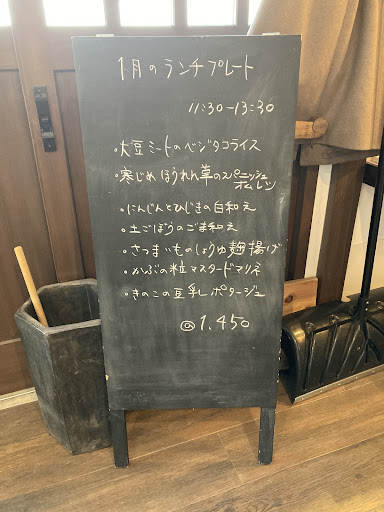 1月のランチプレート
11:30-13:30
・大豆ミートのベジタコライス
・寒じめほうれん草のスパニッシュ
オムレツ
・にんじんとひじきの白和え
・土ごぼうのごま和え
・さつまいものしょうゆ麹揚げ
・かぶの粒マスタードマリネ
・きのこの豆乳ポタージュ
@1.450